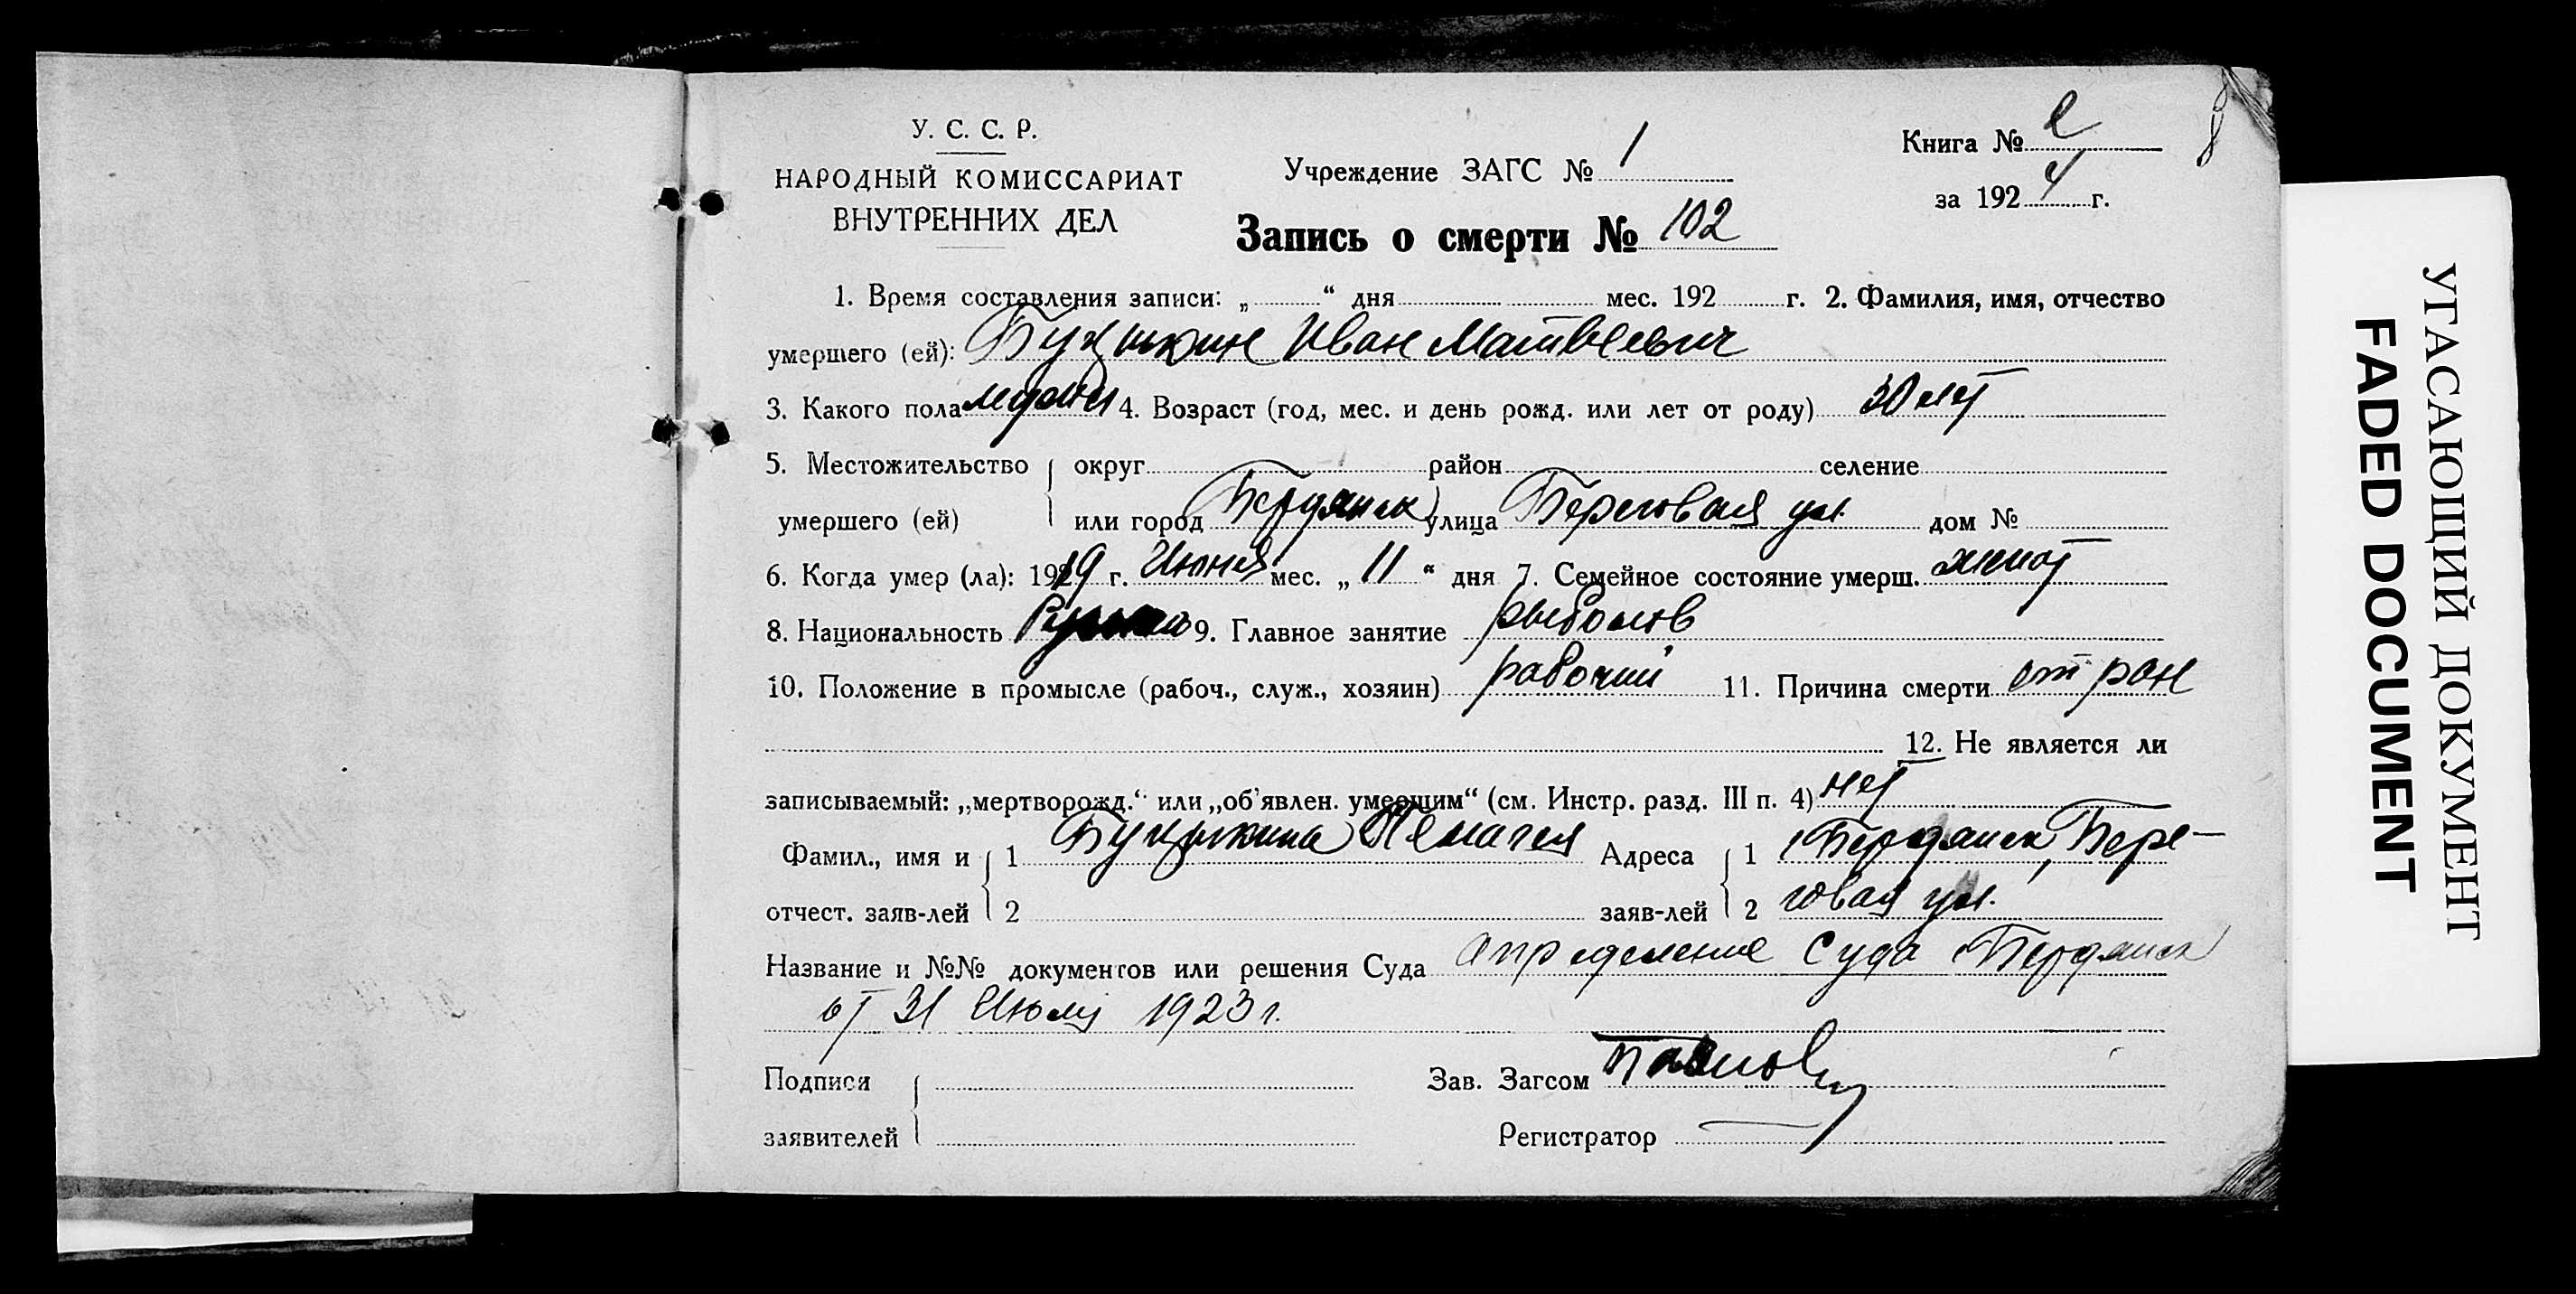 У. С. С. Р.
НАРОДНЫЙ КОМИССАРИАТ
ВНУТРЕННИХ ДЕЛ
Учреждение ЗАГС № 1
Книга № 2
за 1924 г.
8
Запись о смерти № 102
1. Время составления записи: „ “ дня мес. 192 г. 2. Фамилия, имя, отчество
умершего (ей): Иван Матвеевич
3. Какого пола мужск 4. Возраст (год, мес. и день рожд. или лет от роду) 30 лет
5. Местожительство округ район селение
умершего (ей) или город Бердянск улица Береговая ул. дом №
6. Когда умер (ла): 1919 г. Июня мес. „ 11 “ дня 7. Семейное состояние умерш. женат
8. Национальность 9. Главное занятие рыболов
10. Положение в промысле (рабоч., служ., хозяин) рабочий 11. Причина смерти от ран
12. Не является ли
записываемый: „мертворожд.“ или „об'явлен. умершим“ (см. Инстр. разд. III п. 4) нет
Фамил., имя и 1 Пелагея Адреса 1 Бердянск, Бере-
отчест. заяв-лей 2 заяв-лей 2 говая ул.
Название и №№ документов или решения Суда Определение Суда Бердянск
от 31 Июля 1923 г.
Подписи Зав. Загсом
заявителей Регистратор
УГАСАЮЩИЙ ДОКУМЕНТ
FADED DOCUMENT